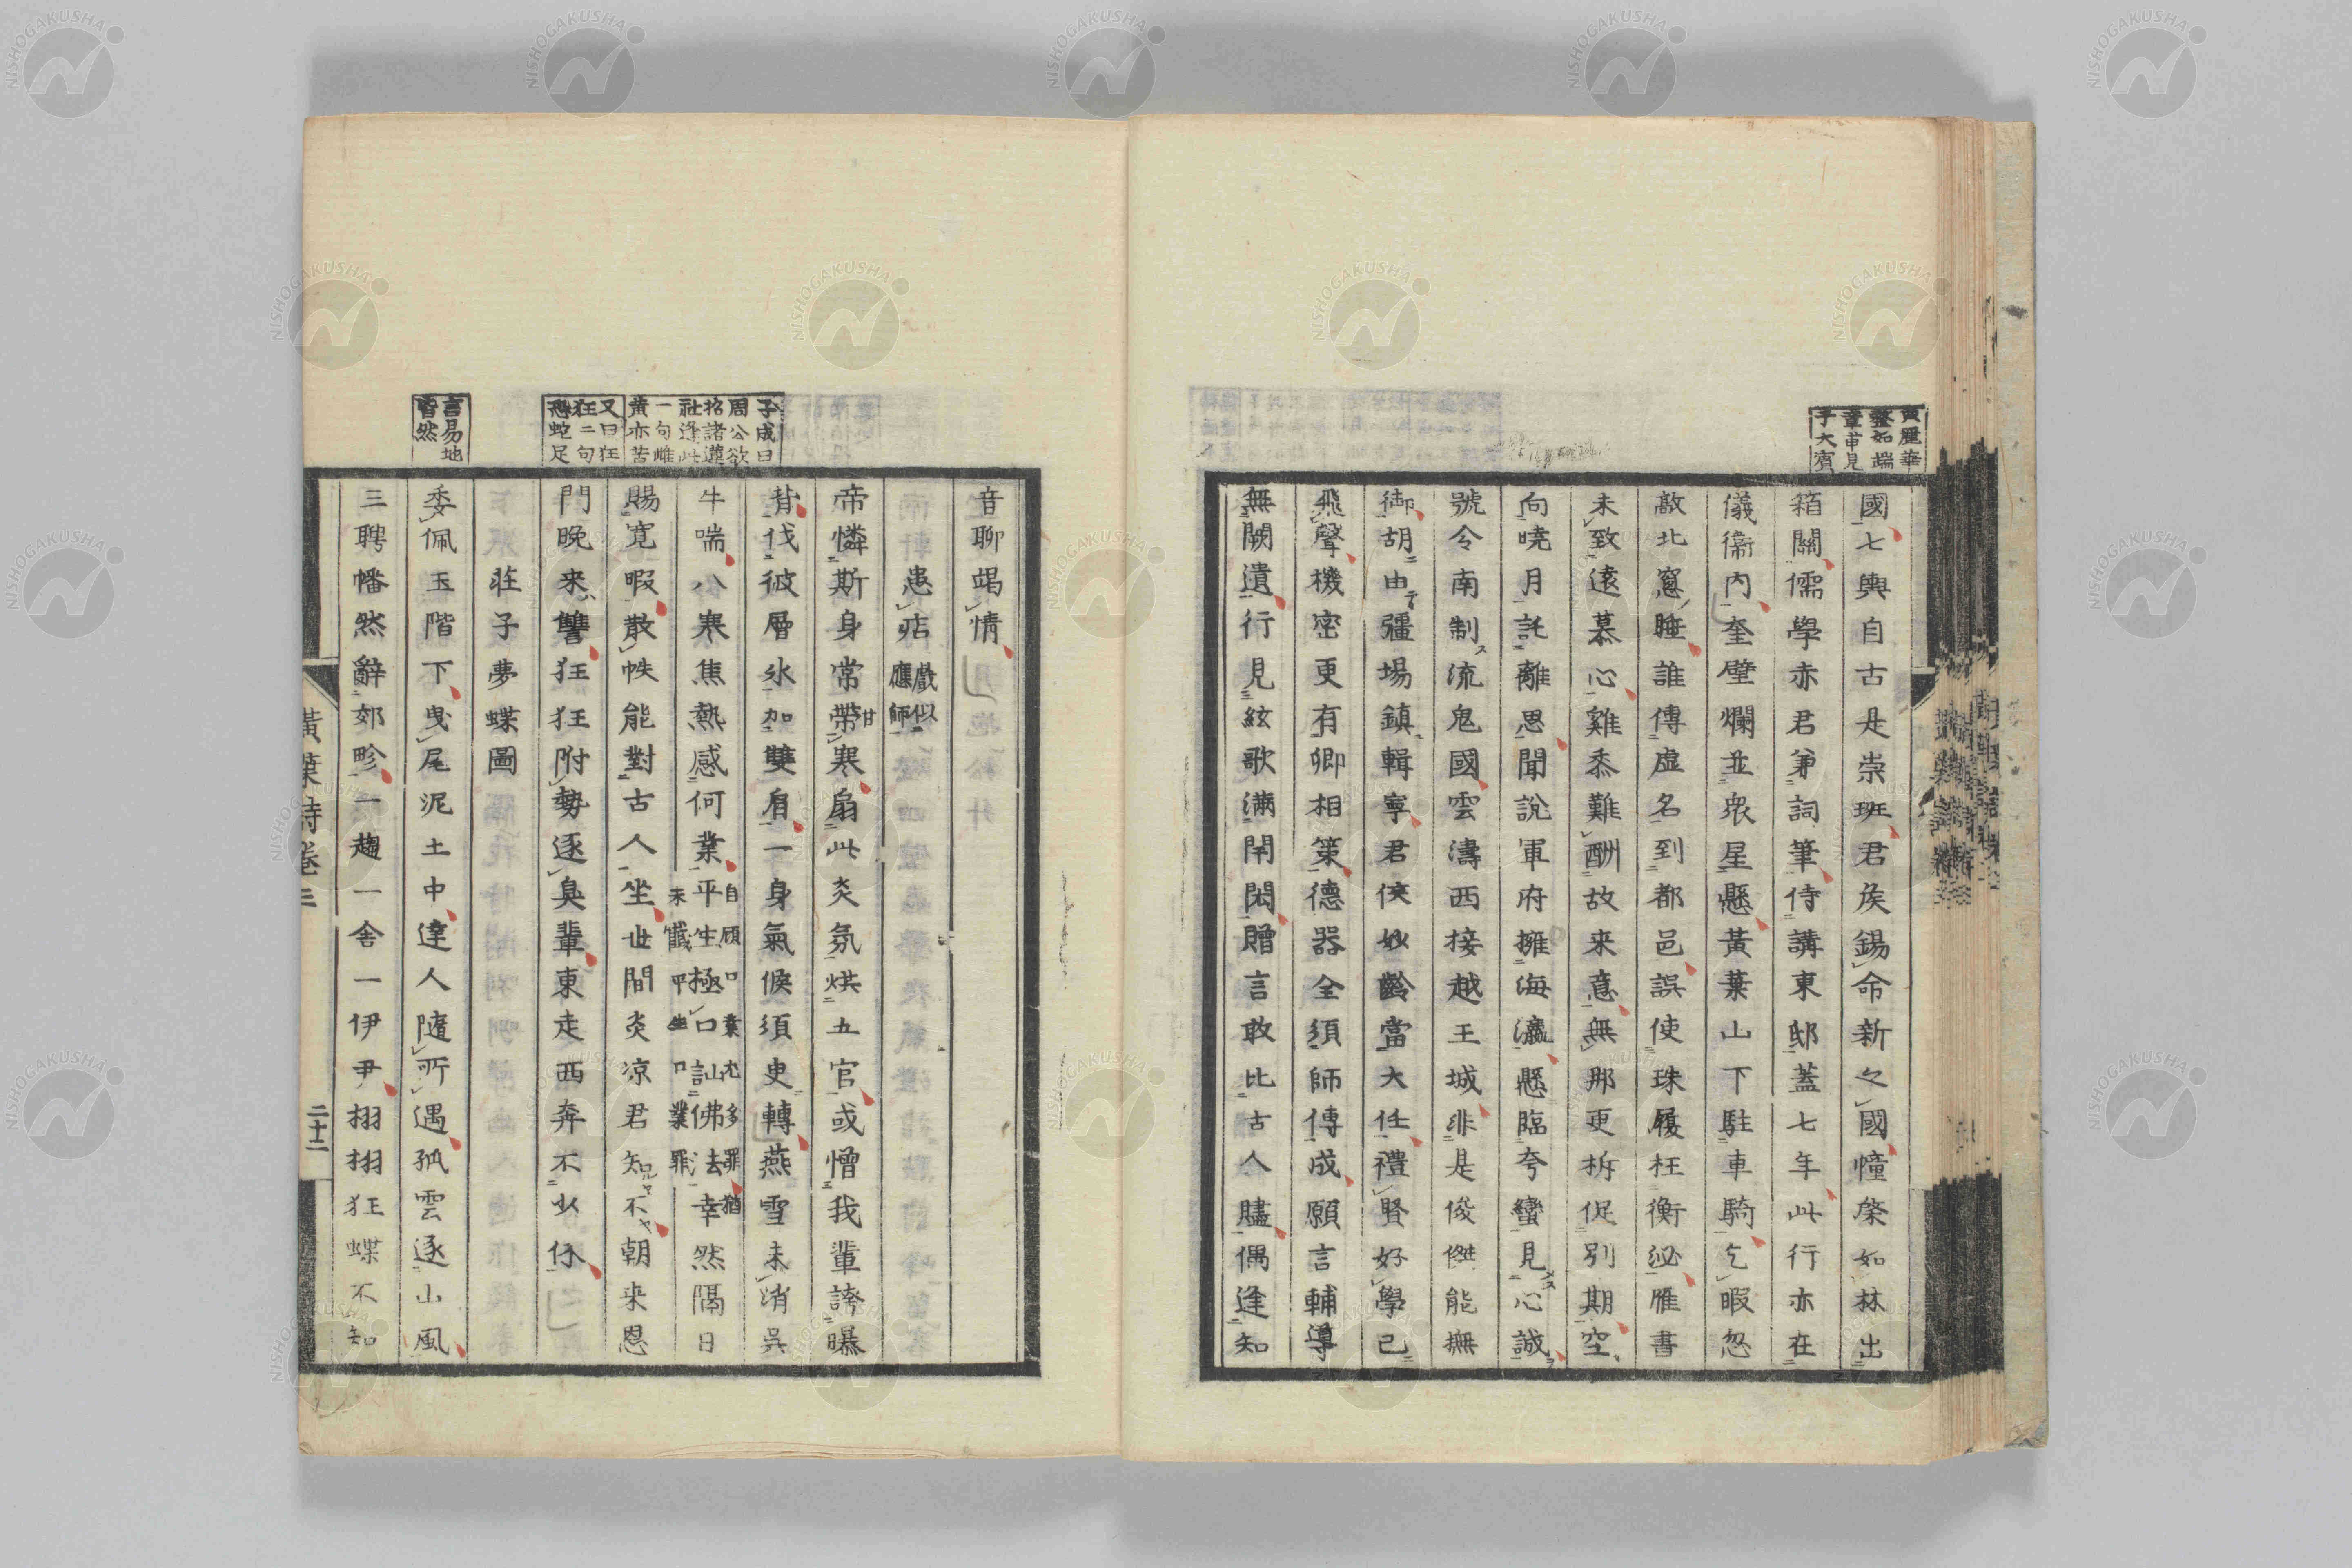 黄麗華
整如端
章甫見
子大賓
國七輿自古是崇班君侯錫命新之國幢棨如林出
箱關儒學亦君弟詞筆侍講東邸蓋七年此行亦在
儀衞內奎壁爛並衆星懸黃葉山下駐車騎乞暇忽
敲北窓睡誰傳虛名到都邑誤使珠履枉衡泌雁書
未致遠慕心雞黍難酬故來意無那更柝促別期空
向曉月託離思聞說軍府擁海瀛懸臨夸蠻見心誠
號令南制流鬼國雲濤西接越王城非是俊傑能撫
御胡由疆場鎮輯寧君侯妙齡當大任禮賢好學已
飛聲機密更有卿相策德器全須師傅成願言輔導
無闕遺行見絃歌滿閈閎贈言敢比古人贐偶逢知
音聊竭情
子成曰
周公欲
招諸遵
社逢此
一句雌
黄亦苦
又曰狂
狂二句
恐蛇足
患痁戲似應師
帝憐斯身常帶寒扇此炎氛烘五官或憎我輩誇曝
背伐彼層氷加雙肩一身氣候須史轉燕雪未消吳
牛喘八寒焦熱感何業平生極口訕佛法幸然隔日
自顧口業尤多罪猶
未懺平生口業罪
賜寬暇散帙能對古人坐世間炎凉君知不朝來恩
門晚來讐狂狂附勢逐臭輩東走西奔不少休
莊子夢蝶圖
言易地
皆然
委佩玉階下曳尾泥土中達人隨所遇孤雲逐山風
三聘幡然辭郊畛一趨一舍一伊尹栩栩狂蝶不知
黃葉詩卷三
二十二
NISHOGAKUSHA